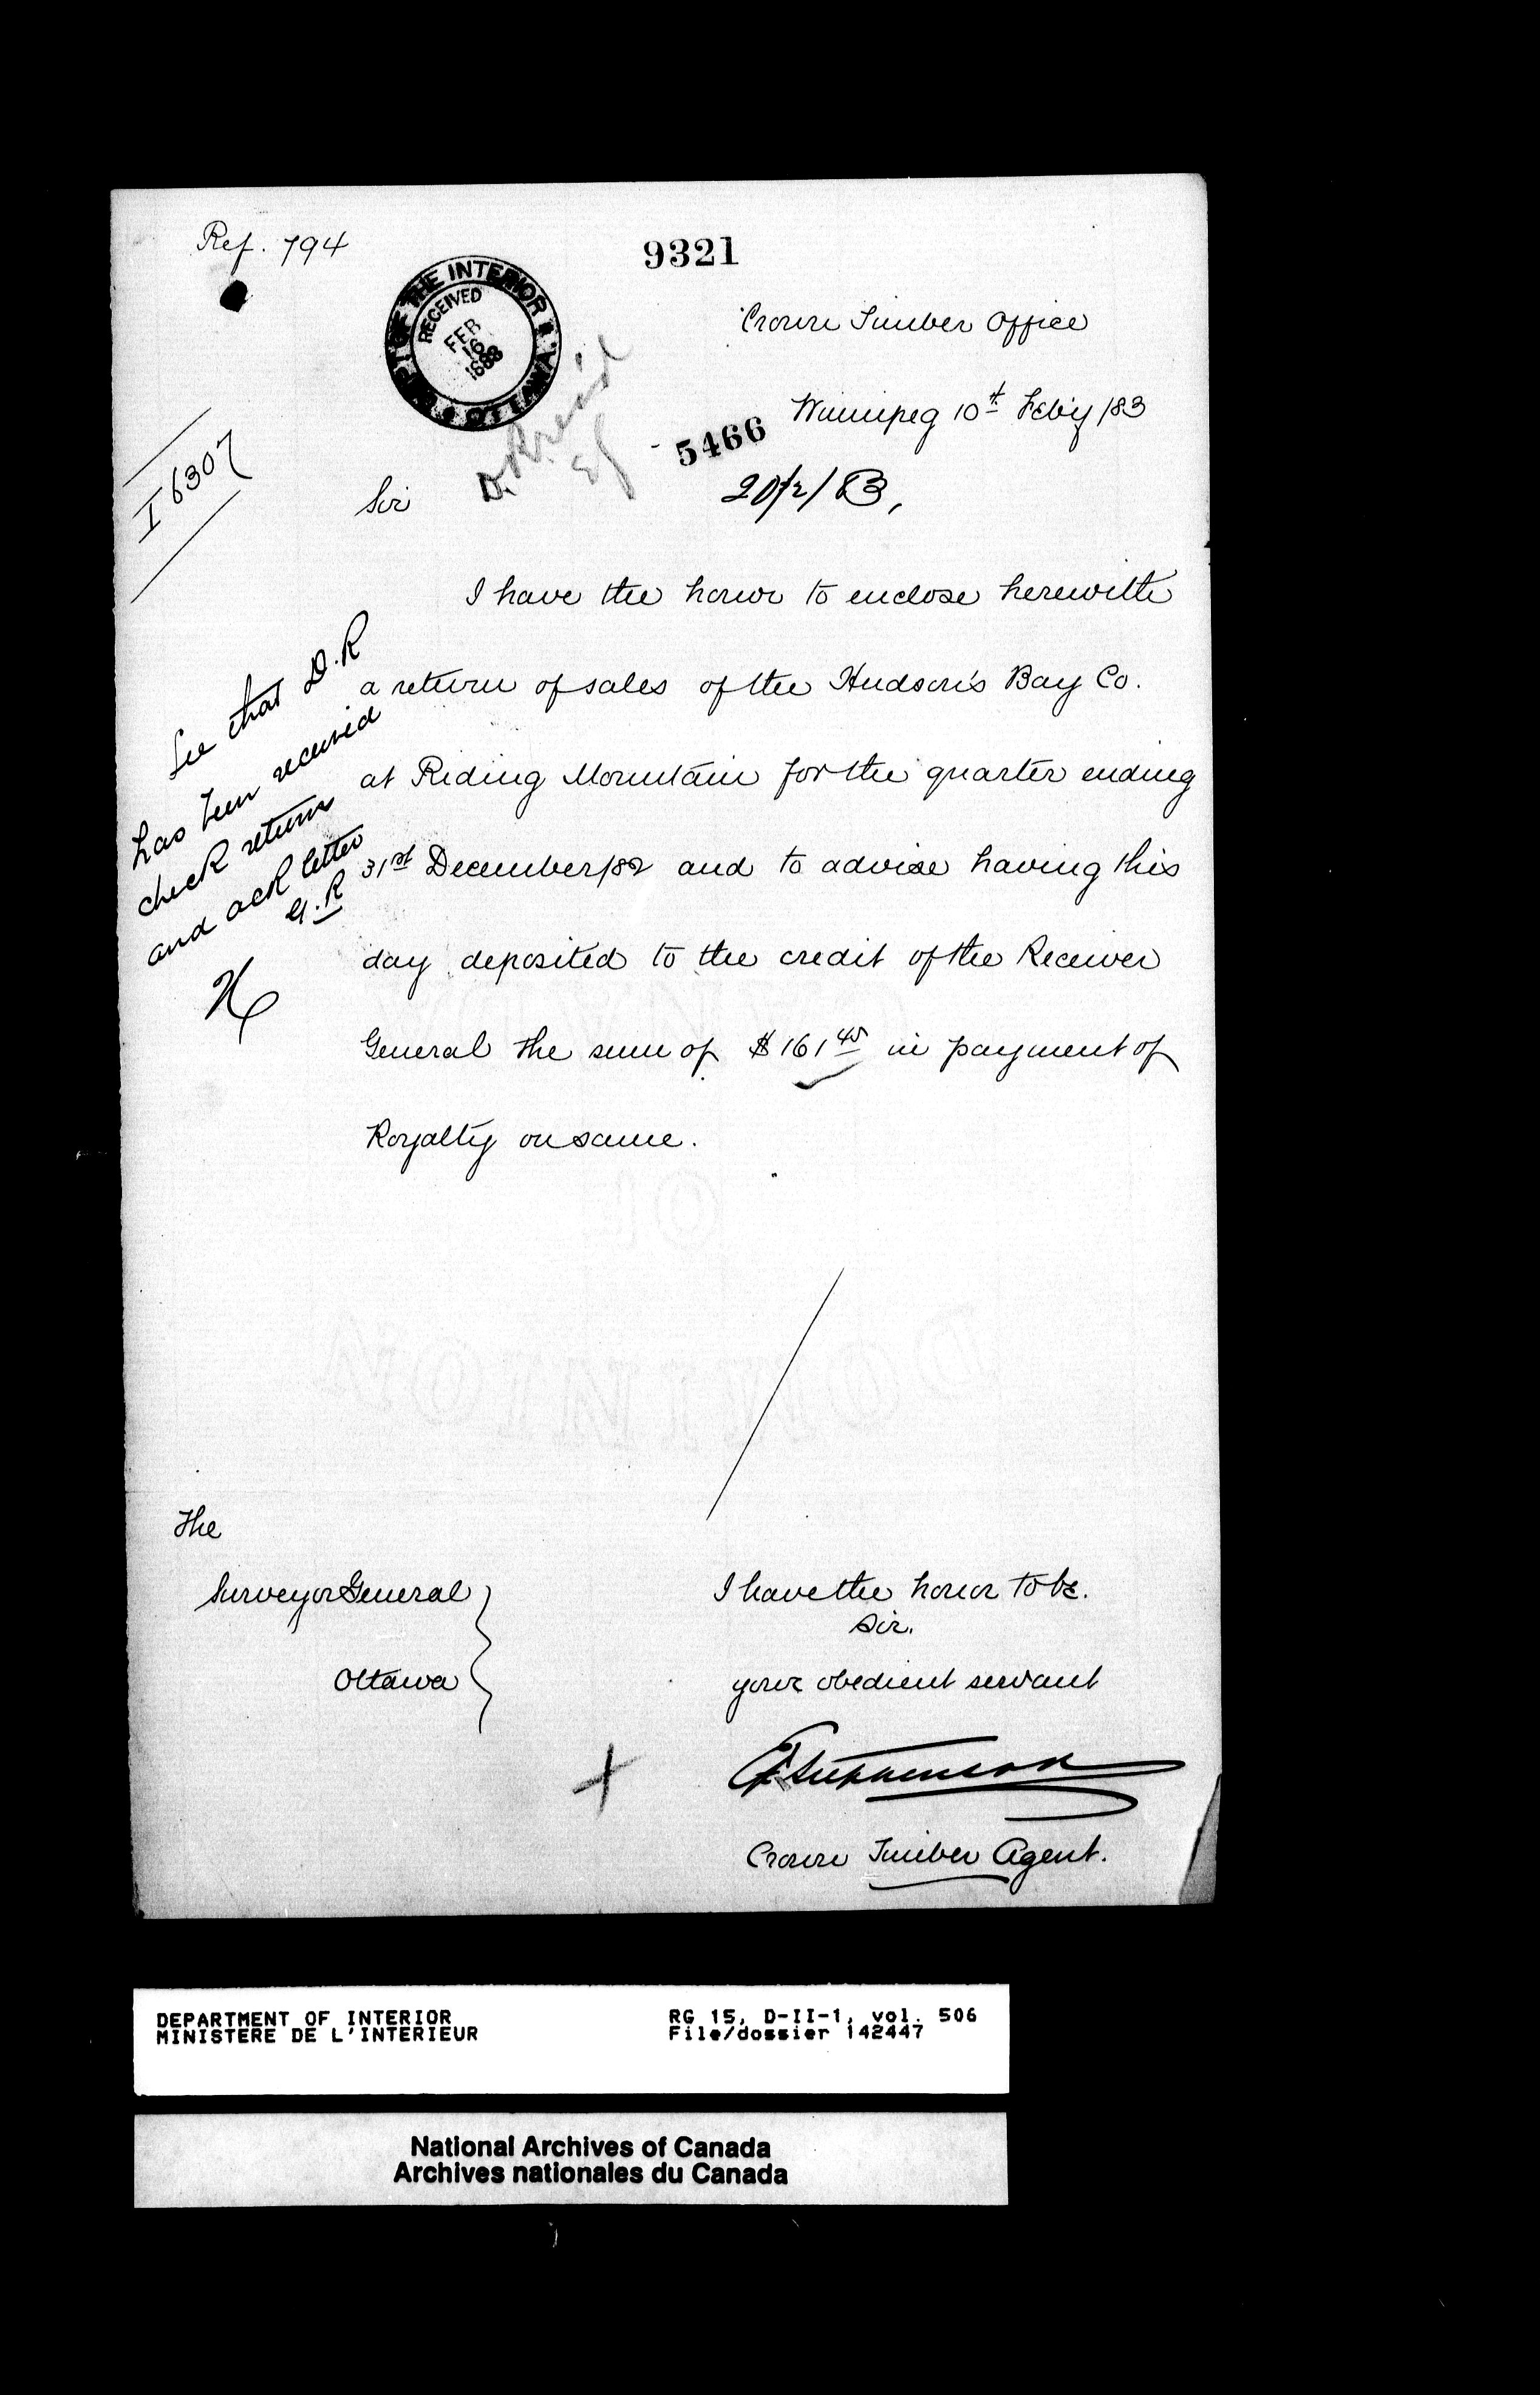 Ref. 794
9321
DEPT. OF THE INTERIOR
OTTAWA.
RECEIVED
FEB
16
1883
Crown Timber Office
Winnipeg 10th Feby /83
5466
20/2/83,
D.R. rec'd
I 6307
Sir
I have the honor to enclose herewith
a return of sales of the Hudson's Bay Co.
at Riding Mountain for the quarter ending
31st December/82 and to advise having this
day deposited to the credit of the Receiver
General the sum of $161 45 in payment of
Royalty on same.
See that D.R
has been received
check return
and ack letter
G.R
The
Surveyor General
Ottawa
I have the honor to be.
Sir.
your obedient servant
Stephenson
Crown Timber Agent.
DOMINION
OF
DEPARTMENT OF INTERIOR
MINISTERE DE L'INTERIEUR
RG 15, D-II-1, vol. 506
File/dossier 142447
National Archives of Canada
Archives nationales du Canada